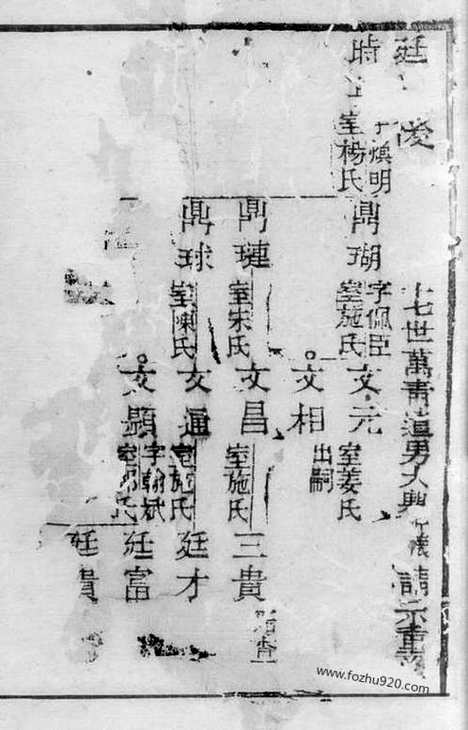 廷
十七世萬青
男大興
請示
時
字煥明
室楊氏
鼎瑚
字佩臣
室施氏
文元
室姜氏
文相
出嗣
鼎璉
室宋氏
文昌
室施氏
三貴
鼎球
室陳氏
文通
室施氏
廷才
文顯
字翰斌
廷富
廷貴
www.fozhu920.com